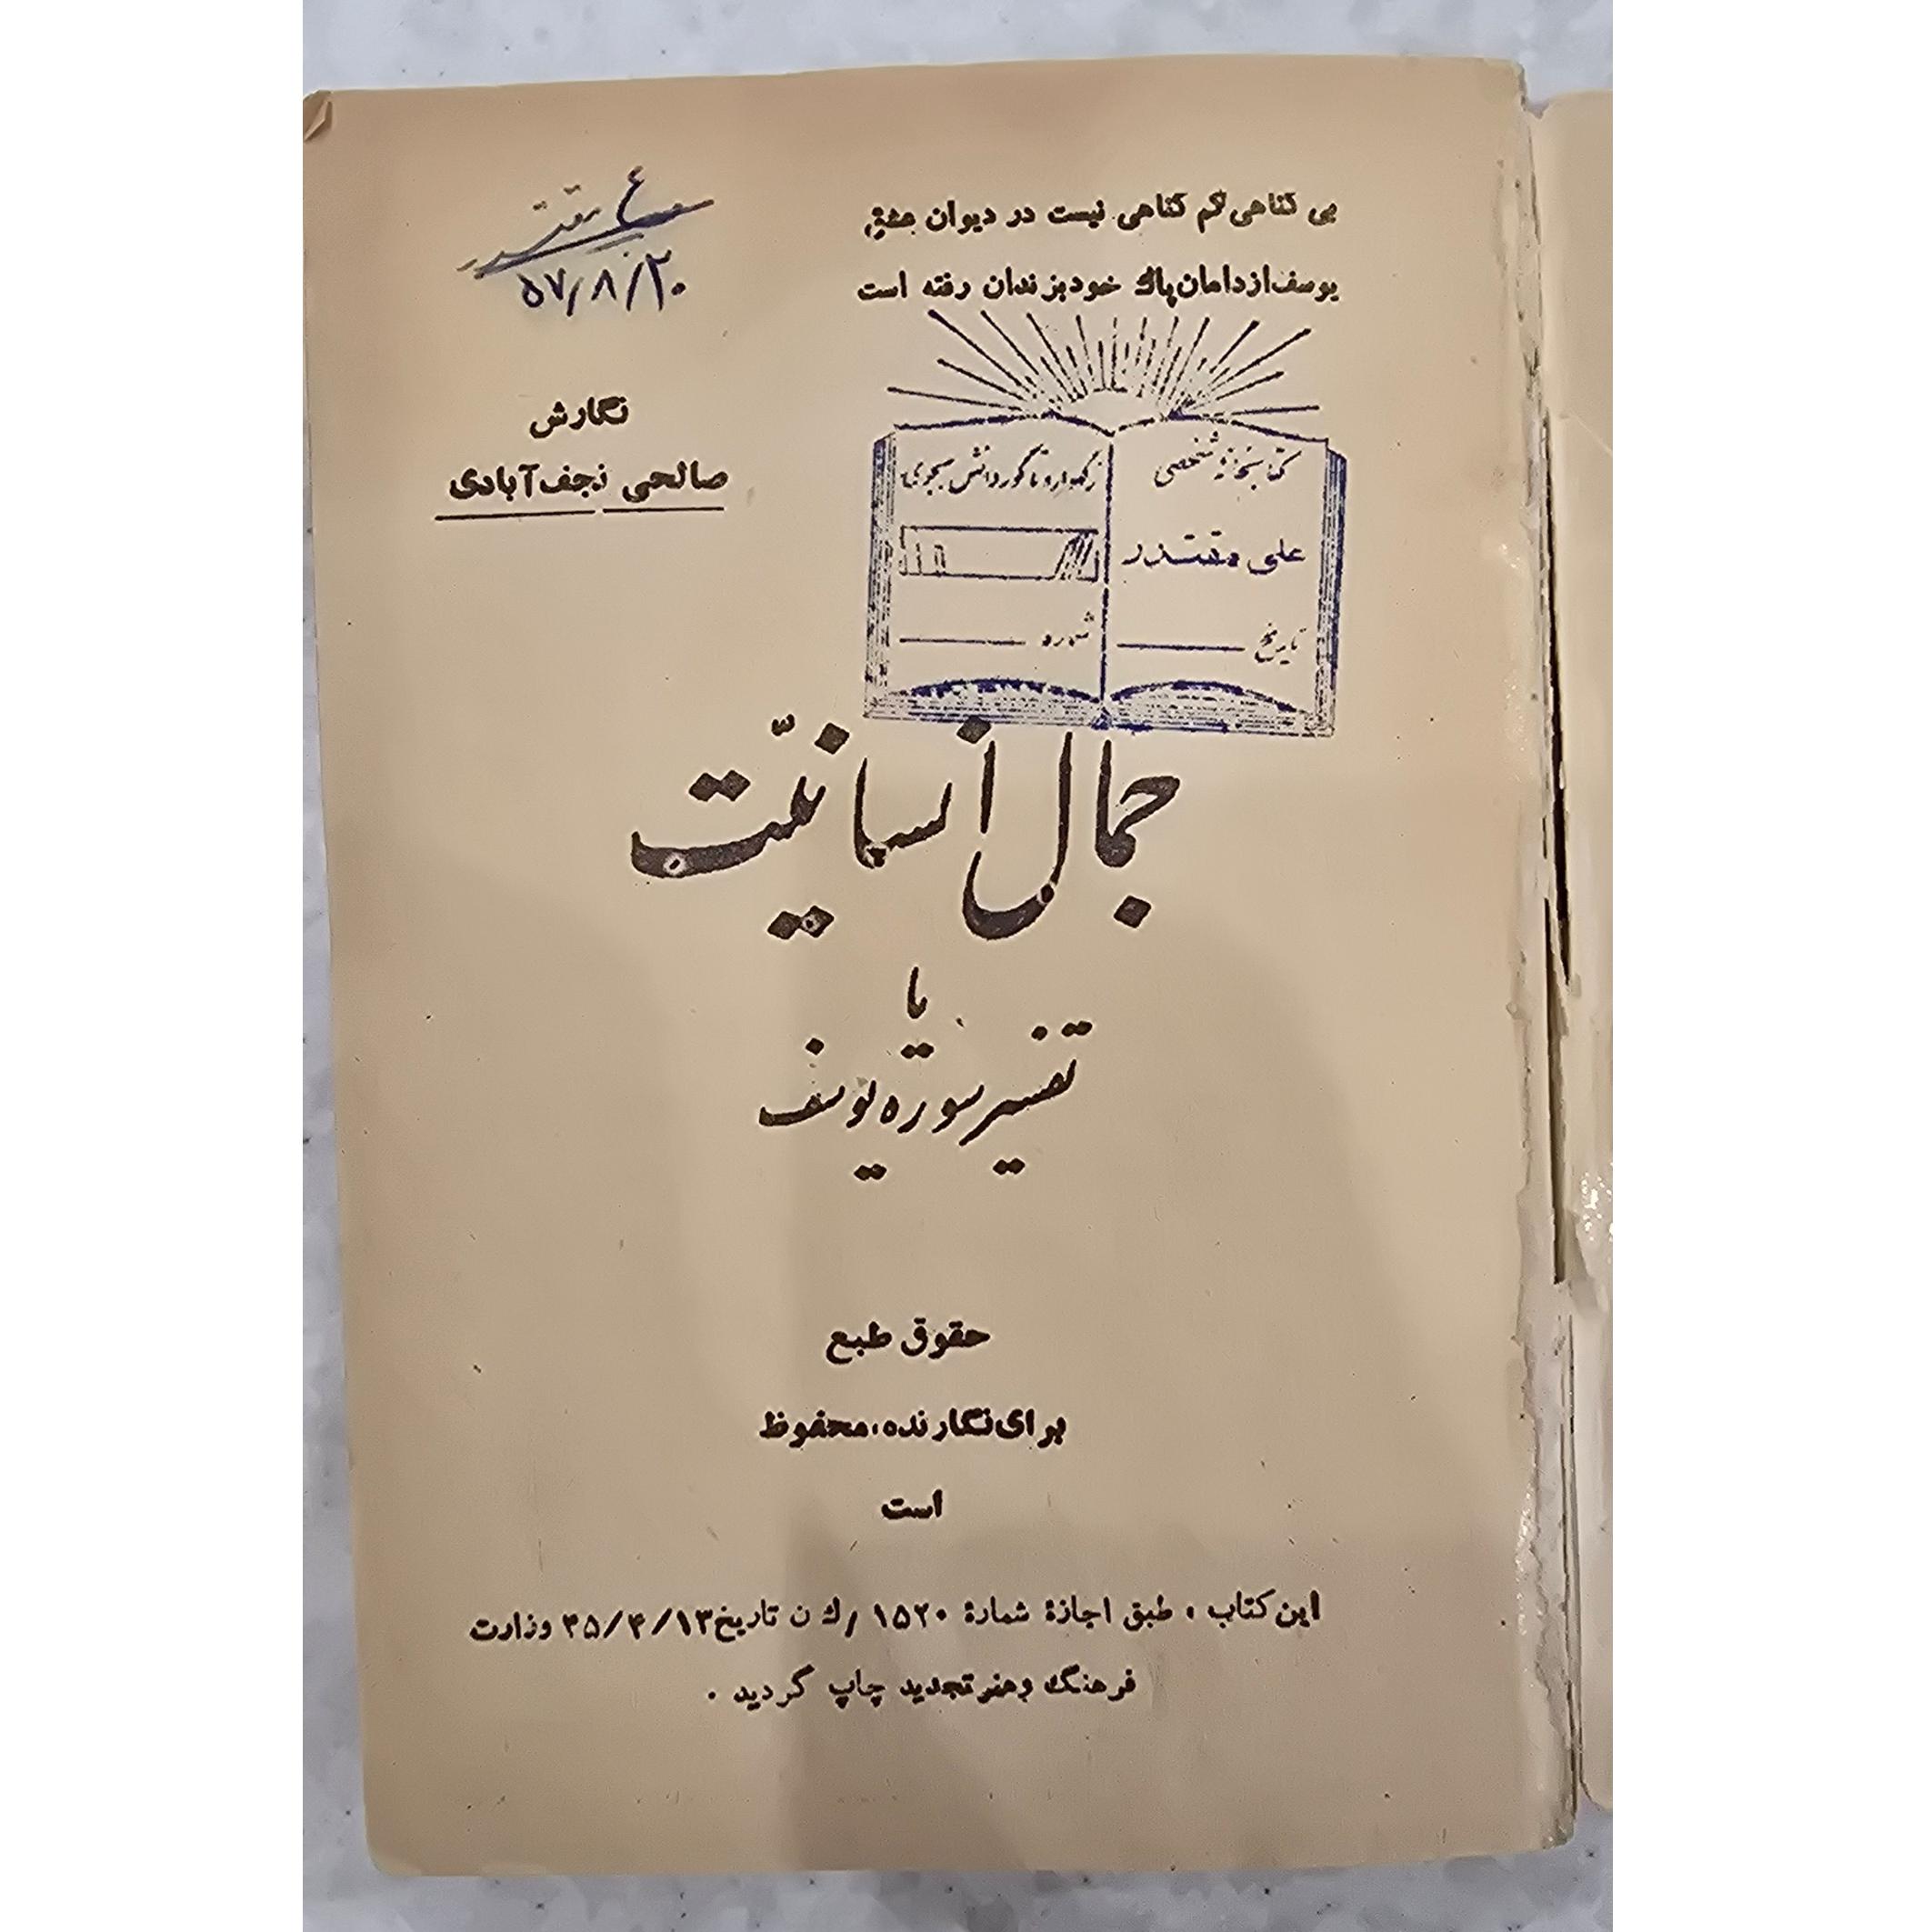 بی گناهی کم گناهی نیست در دیوان عشق
یوسف از دامان پاك خود بزندان رفته است
ع مقتدر
۵۷/۸/۲۰
نگارش
صالحی نجف‌آبادی
کتابخانه شخصی
علی مقتدر
تاریخ
زگهواره تا گور دانش بجوی
شماره
جمال انسانیّت
یا
تفسیر سوره یوسف
حقوق طبع
برای نگارنده، محفوظ
است
این کتاب، طبق اجازهٔ شمارهٔ ۱۵۲۰ /ك ن تاریخ ۴۵/۴/۱۳ وزارت
فرهنگ وهنر تجدید چاپ گردید .